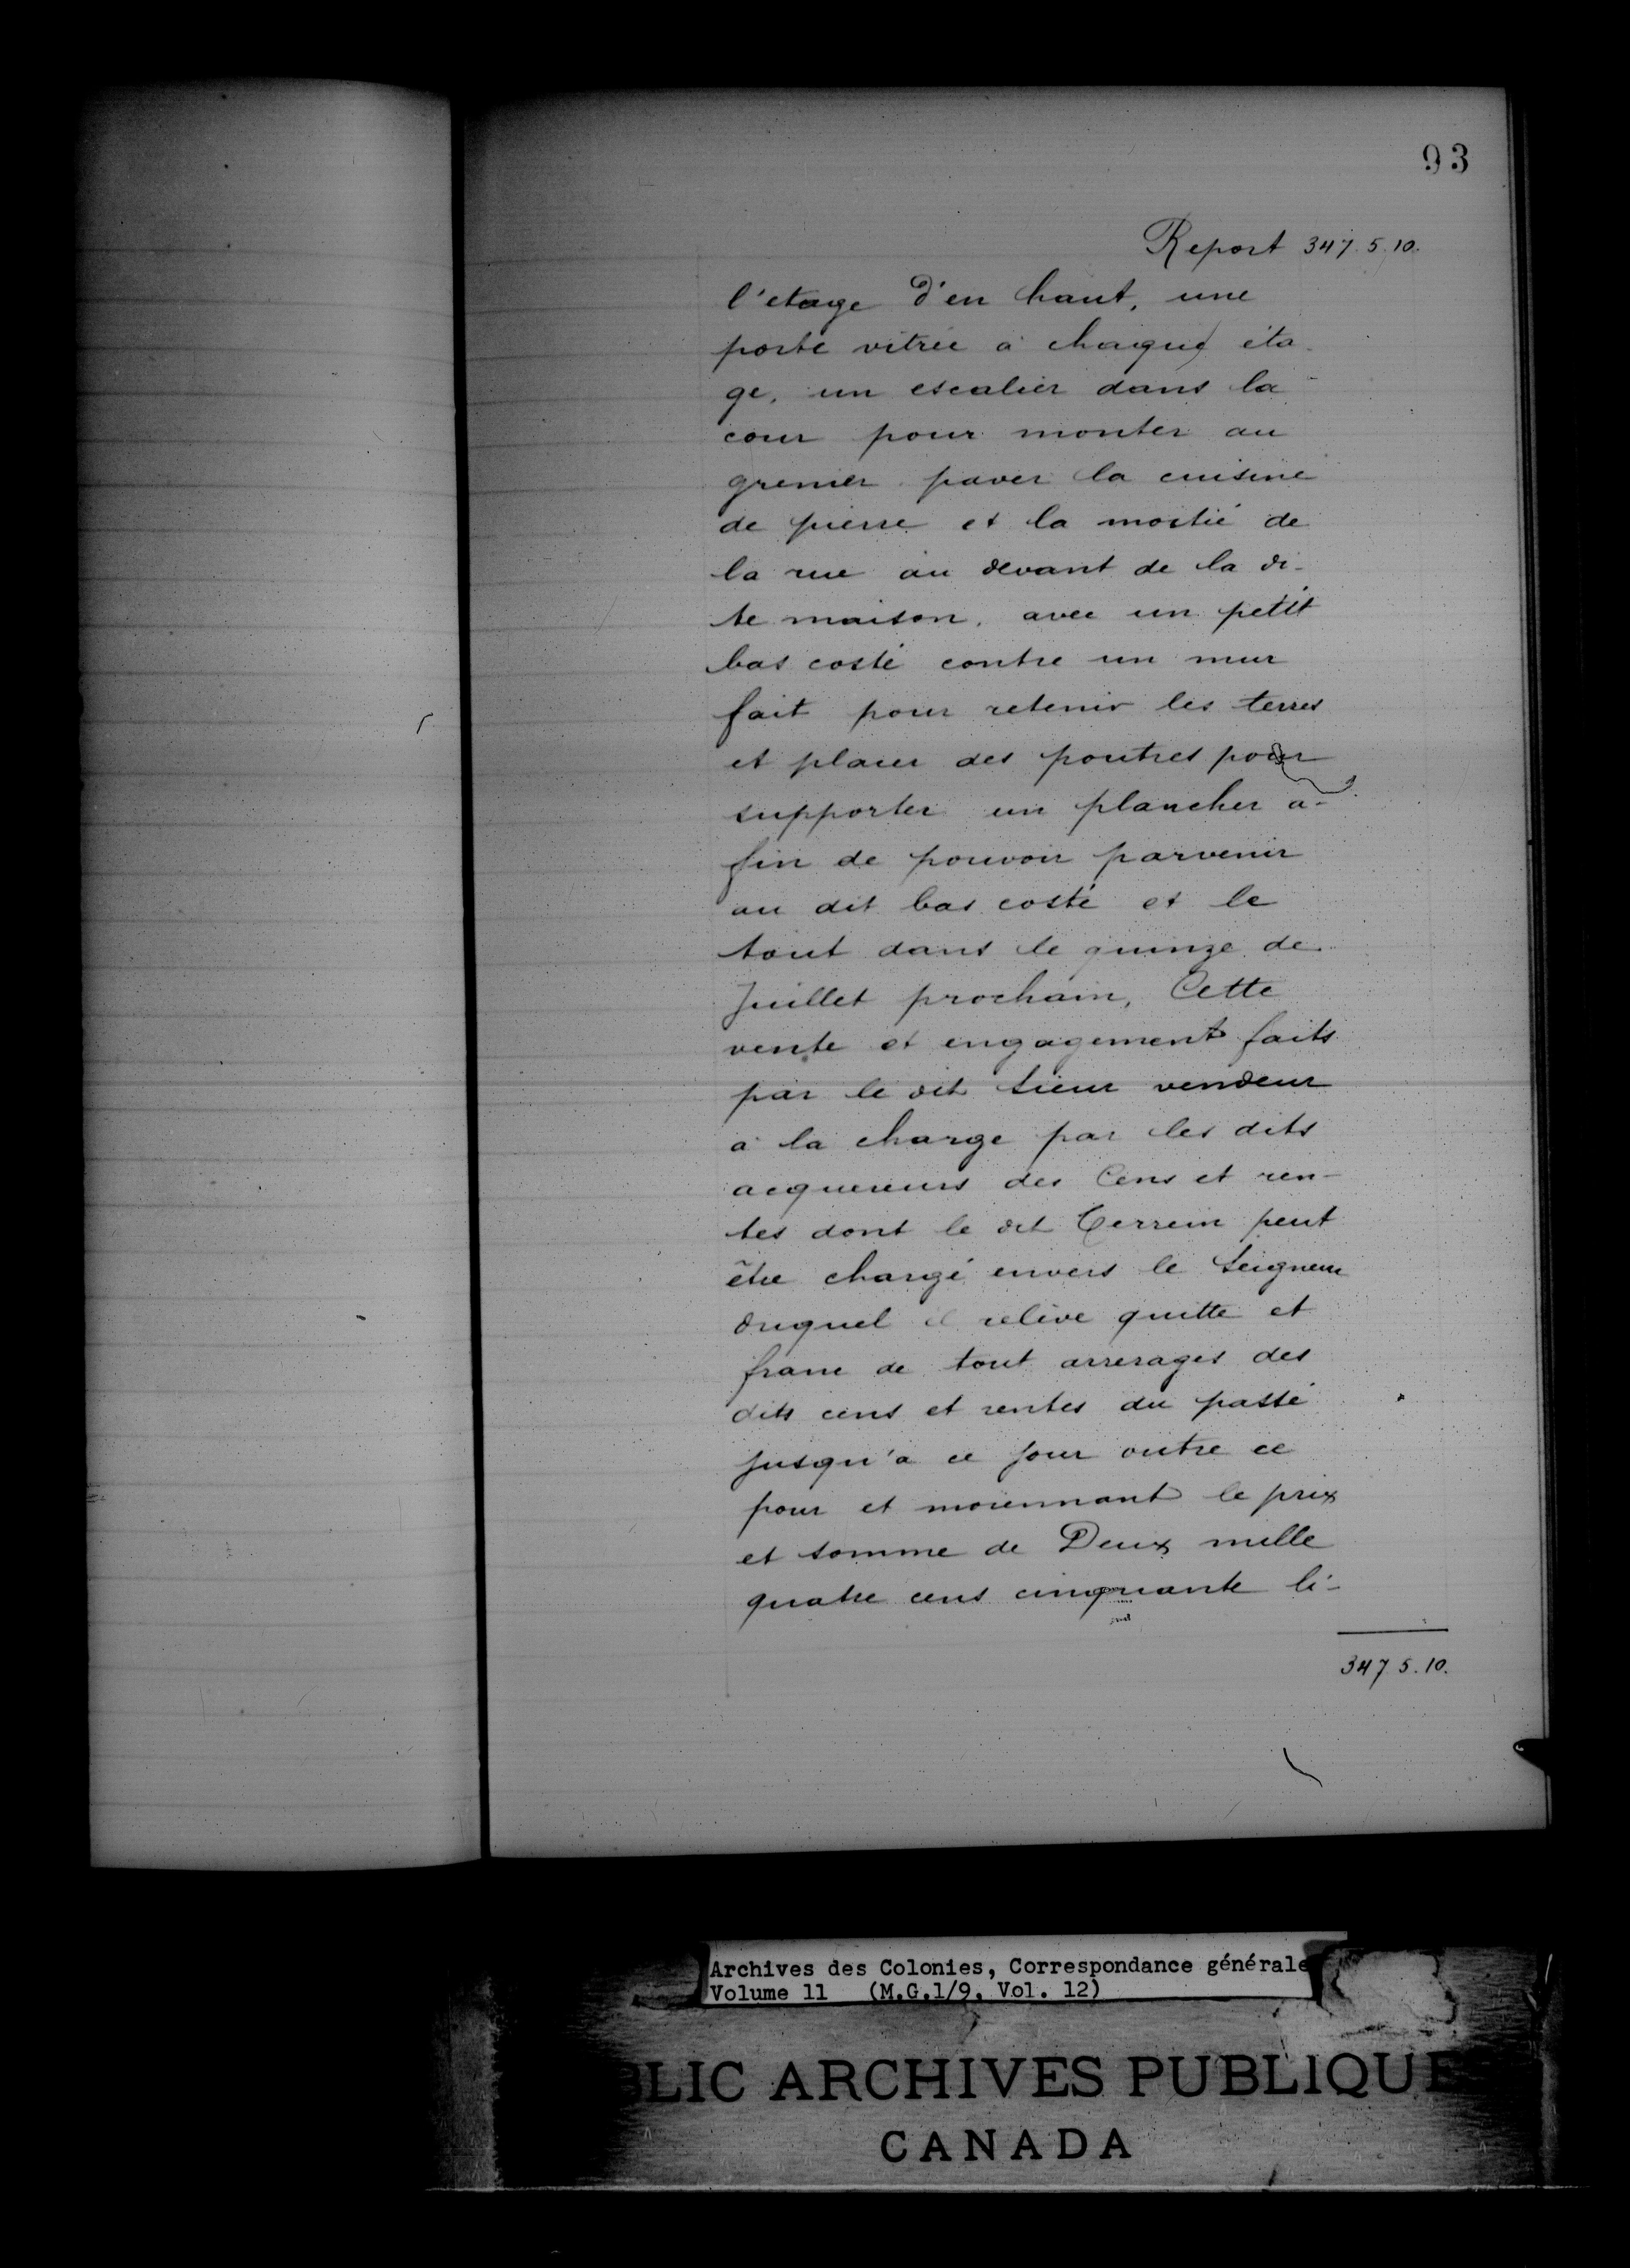 93
Report 347.5.10.
l'etage d'en haut, une
porte vitrée à chaque éta-
ge, un escalier dans la
cour pour monter au
grenier paver la cuisine
de pierre et la moitié de
la rue au devant de la di-
te maison, avec un petit
bas costé contre un mur
fait pour retenir les terres
et placer des poutres pour
supporter un plancher a-
fin de pouvoir parvenir
au dit bas costé et le
tout dans le quinze de
Juillet prochain, Cette
vente et engagement faits
par le dit Sieur vendeur
à la charge par les dits
acquereurs des Cens et ren-
tes dont le dit Terrein peut
être chargé envers le Seigneur
duquel il relève quitte et
franc de tout arrerages des
dits cens et rentes du passé
jusqu'à ce jour outre ce
pour et moiennant le prix
et somme de Deux mille
quatre cens cinquante li-
347.5.10.
Archives des Colonies, Correspondance générale
Volume 11 (M.G.1/9, Vol. 12)
BLIC ARCHIVES PUBLIQUE
CANADA